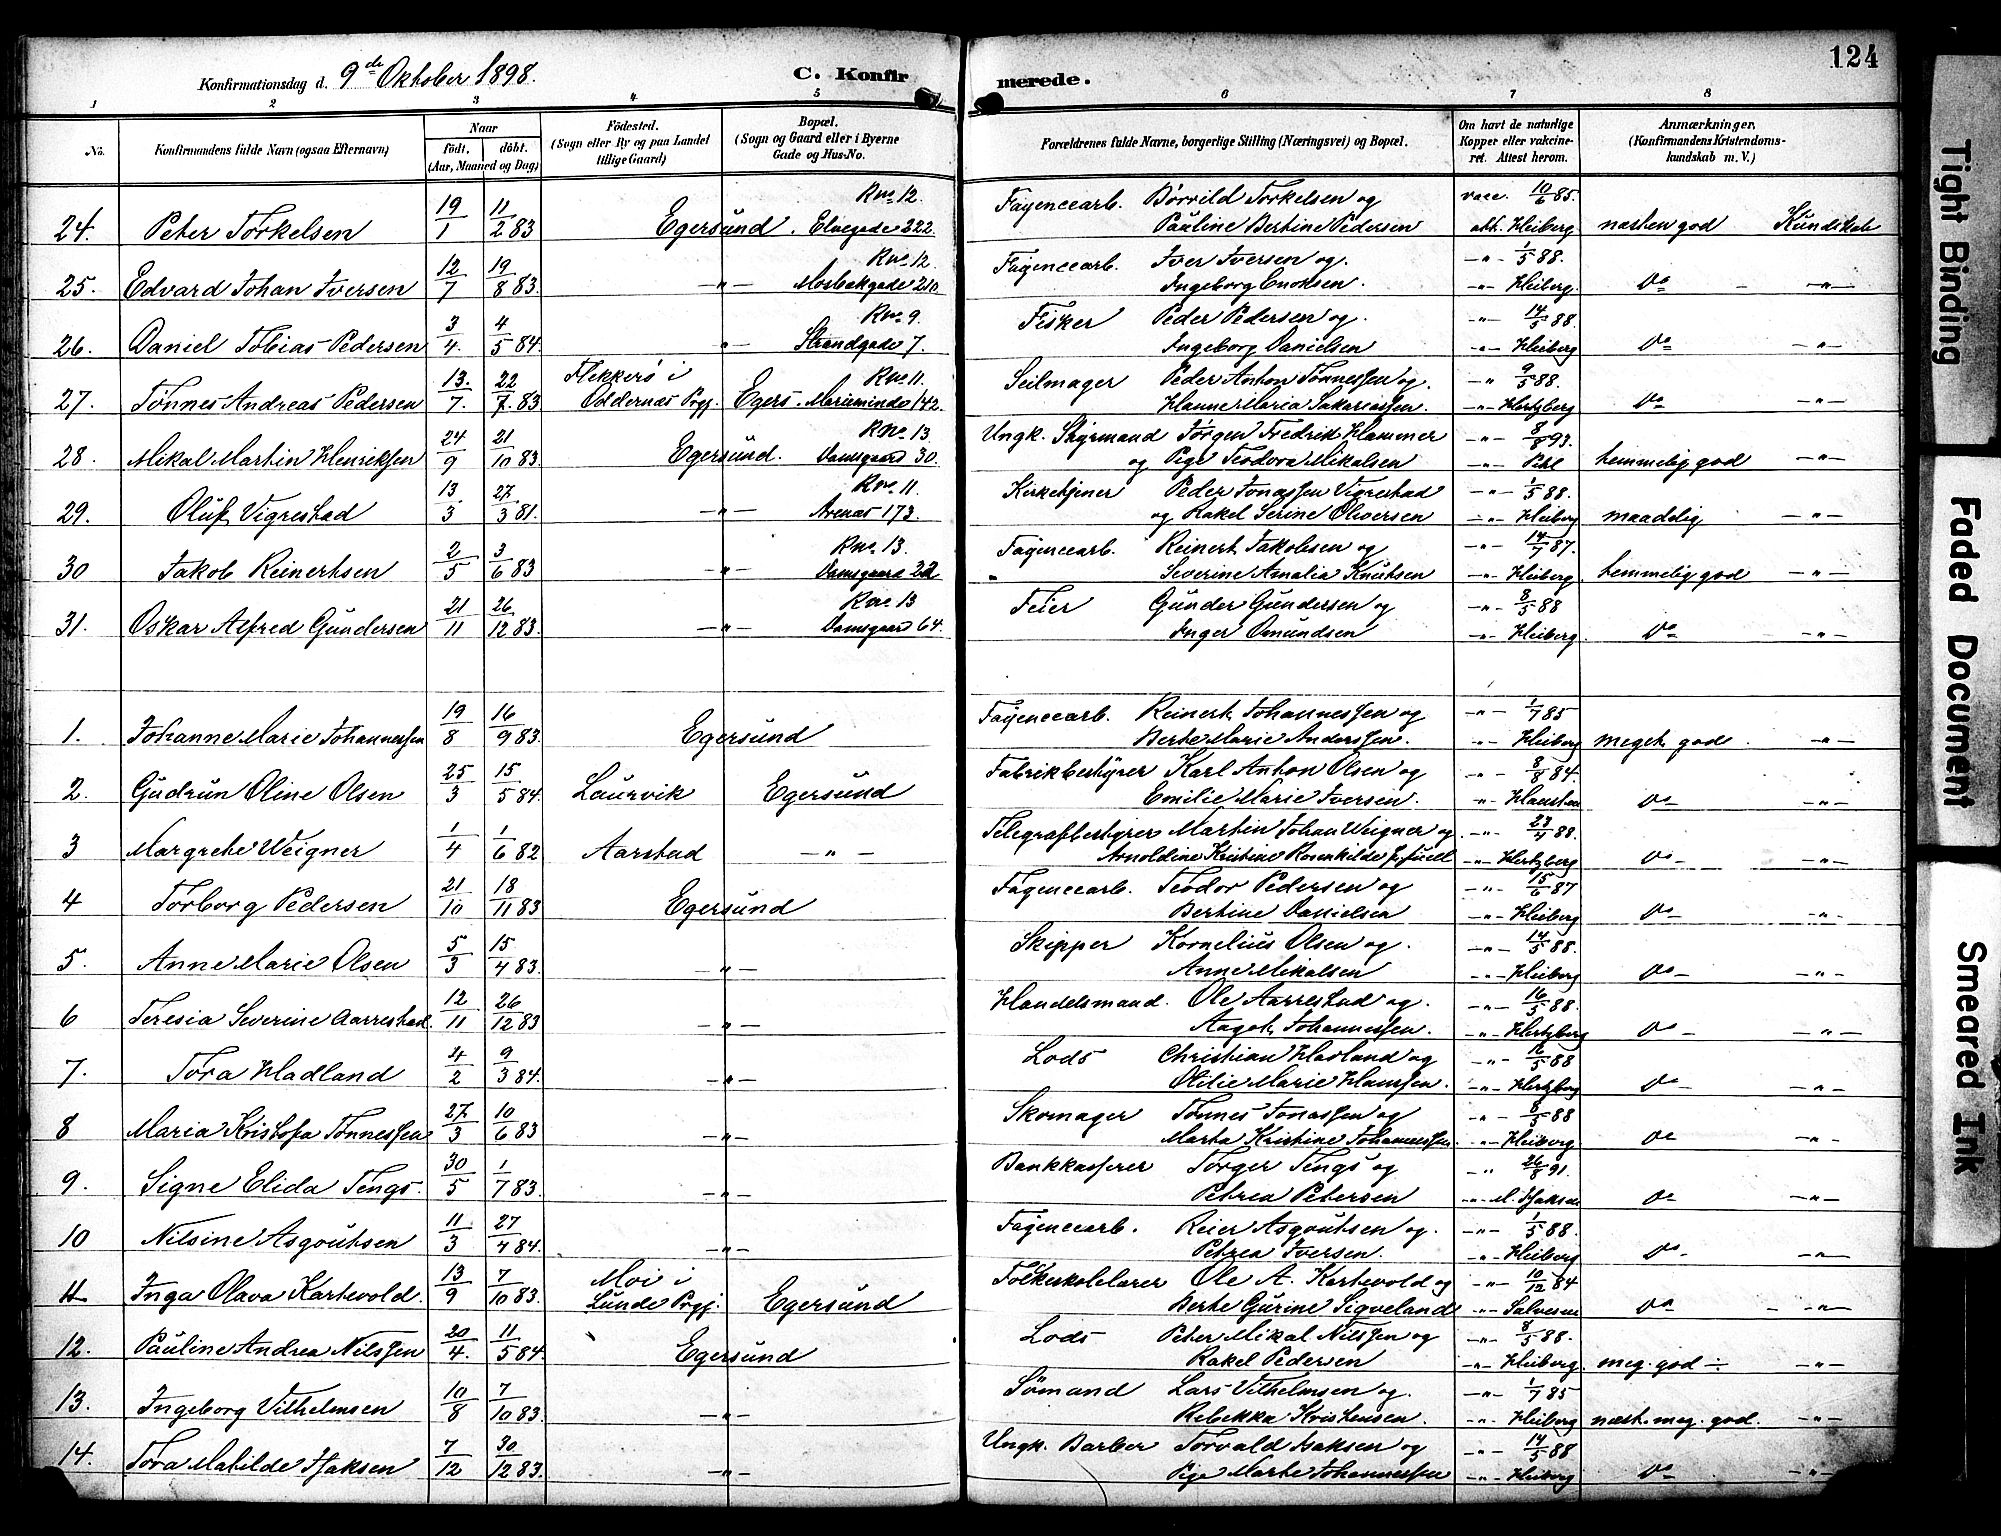 Konfirmationsdag d. 9de Oktober 1898.
C. Konfirmerede.
124
1 2 3 4 5 6 7 8
No.
Konfirmandens fulde Navn (ogsaa Efternavn)
Naar
födt, döbt.
(Aar, Maaned og Dag)
Födested.
(Sogn eller By og paa Landet
tillige Gaard)
Bopæl.
(Sogn og Gaard eller i Byerne
Gade og Hus-No.
Forældrenes fulde Navne, borgerlige Stilling (Næringsvei) og Bopæl.
Om havt de naturlige
Kopper eller vakcine-
ret. Attest herom.
Anmærkninger.
(Konfirmandens Kristendoms-
kundskab m. V.)
24. Peter Torkelsen 19/1 11/2 83 Egersund. Rno. 12. Elvegade 222. Fayencearb. Börvild Torkelsen og Pauline Bertine Pedersen vacc. 10/6 85. att. Heiberg næsten god Kundskab
25. Edvard Johan Iversen 12/7 19/8 83. -"- Rno. 12. Mosbækgade 210 Fayencearb. Iver Iversen og Ingeborg Enoksen. -"- 1/5 88. -"- Heiberg. Do -"-
26. Daniel Tobias Pedersen 3/4. 4/5 84. "- Rno. 9. Strandgade 7. Fisker Peder Pedersen og Ingeborg Danielsen -"- 14/5 88. -"- Heiberg Do -"-
27. Tönnes Andreas Pedersen 13./7. 22/7. 83 Flekkerö i Oddernæs Prgj. Egers. Rno. 11. Marieminde 142. Seilmager Peder Anton Tönnessen og Hanne Maria Sakariassen. -" 9/5 88. -"- Hertzberg Do -"-
28. Mikal Martin Henriksen 24/9 21/10 83. Egersund. Rno. 13. Damsgaard 30. Ungk. Styrmand Jörgen Fredrik Hammer og Pige Teodora Mikalsen -"- 8/8 93. -"- Pihl temmelig god -"-
29. Oluf Vigrestad 13./3 27./3 81. -"- Rno. 11. Arenæs 173. Kirketjener Peder Jonassen Vigrestad og Rakel Serine Olversen -"- 1/5 88. -"- Heiberg maadelig -"-
30 Jakob Reinertsen 2/5 3/6 83 -"- Rno. 13. Damsgaard 22 Fayencearb. Reinert Jakobsen og Severine Amalia Knutsen -"- 14/7 87. -"- Heiberg. temmelig god -"-
31. Oskar Alfred Gundersen 21/11 26/12 83. -"- Rno 13 Damsgaard 64. Feier Gunder Gundersen og Inger Omundsen -"- 8/5 88 -"- Heiberg. Do -"-
1. Johanne Marie Johannessen 19/8 16/9 83. Egersund Fayencearb. Reinert Johannessen og Berte Marie Anderssen. -"- 1/7 85 -"- Heiberg meget god. -"-
2. Gudrun Oline Olsen 25/3 15/5 84. Laurvik Egersund Fabrikbestyrer Karl Anton Olsen og Emilie Marie Iversen. -"- 8/8 84. -"- Do -"-
3 Margrete Weigner 1/4 1/6 82 Aarstad -"- Telegrafbestyrer Martin Johan Weigner og Arnoldine Kristine Rosenkilde -"- 23/4 88. -"- Hertzberg Do -"-
4 Torborg Pedersen 21/10 18/11 83 Egersund Fayencearb. Teodor Pedersen og Bertine Danielsen -"- 15/6 87 -"- Heiberg Do -"-
5. Anne Marie Olsen 5/3 15/4 83. -"- Skipper Kornelius Olsen og Anne Mikalsen -"- 14/5 88. -"- Heiberg Do -"-
6 Teresia Severine Aarrestad. 12/11 26/12 83 -"- Handelsmand. Ole Aarrestad og Aagot Johannessen. -"- 16/5 88. -"- Hertzberg Do -"-
7. Tora Hadland 4/2 9/3 84. -"- Lods Christian Hadland og Otilie Marie Hanssen. -"- /5 88 -"- Hertzberg Do -"-
8 Maria Kristofa Tönnessen 27./3 10/6 83 -"- Skomager Tönnes Jonassen og Marta Kristine Johannessen. -"- 8/5 88 -"- Heiberg. Do -"-
9. Signe Elida Tengs. 30/5 1/7 83. -"- Bankkasserer Torger Tengs og Petrea Petersen -"- 26/8 91. -"- Do -"-
10 Nilsine Asgoutsen 11/3 27/4 84. -"- Fayencearb. Reier Asgoutsen og Petrea Iversen. -"- 1/5 88. -"- Heiberg Do -"-
11 Inga Olava Kartevold. 13/9 7/10 83. Moi i Lunde Prgj. Egersund Folkeskolelærer Ole A. Kartevold og Berte Gurine Sigveland -"- 10/12 84 -"- Salvesen Do -"-
12. Pauline Andrea Nilssen 20/4. 11/5 84. Egersund Lods Peter Mikal Nilssen og Rakel Pedersen -"- 8/5 88. -"- Heiberg. meg. god ÷ -"-
13. Ingeborg Vilhelmsen 10/8 7/10 83. -"- Sömand Lars Vilhelmsen og Rebekka Kristensen. -"- 1/7 85 -"- Heiberg næst. meg. god. -"-
14. Tora Matilde Isaksen 7/12 30/12 83. -"- Ungk. Barber Torvald Isaksen og Pige Marte Johannessen -"- 14/5 88 -"- Heiberg Do -"-
Tight Binding
Faded Document
Smeared Ink